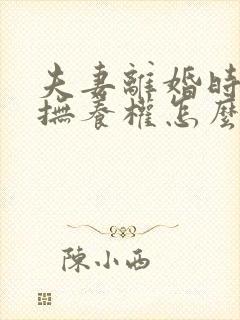 夫妻離婚時
撫養權怎麼
陳小西